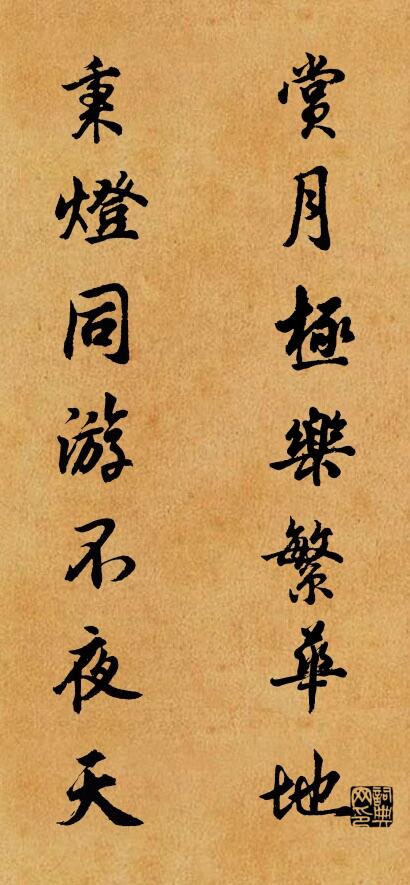 賞月極樂繁華地
秉燈同游不夜天
詞典網印